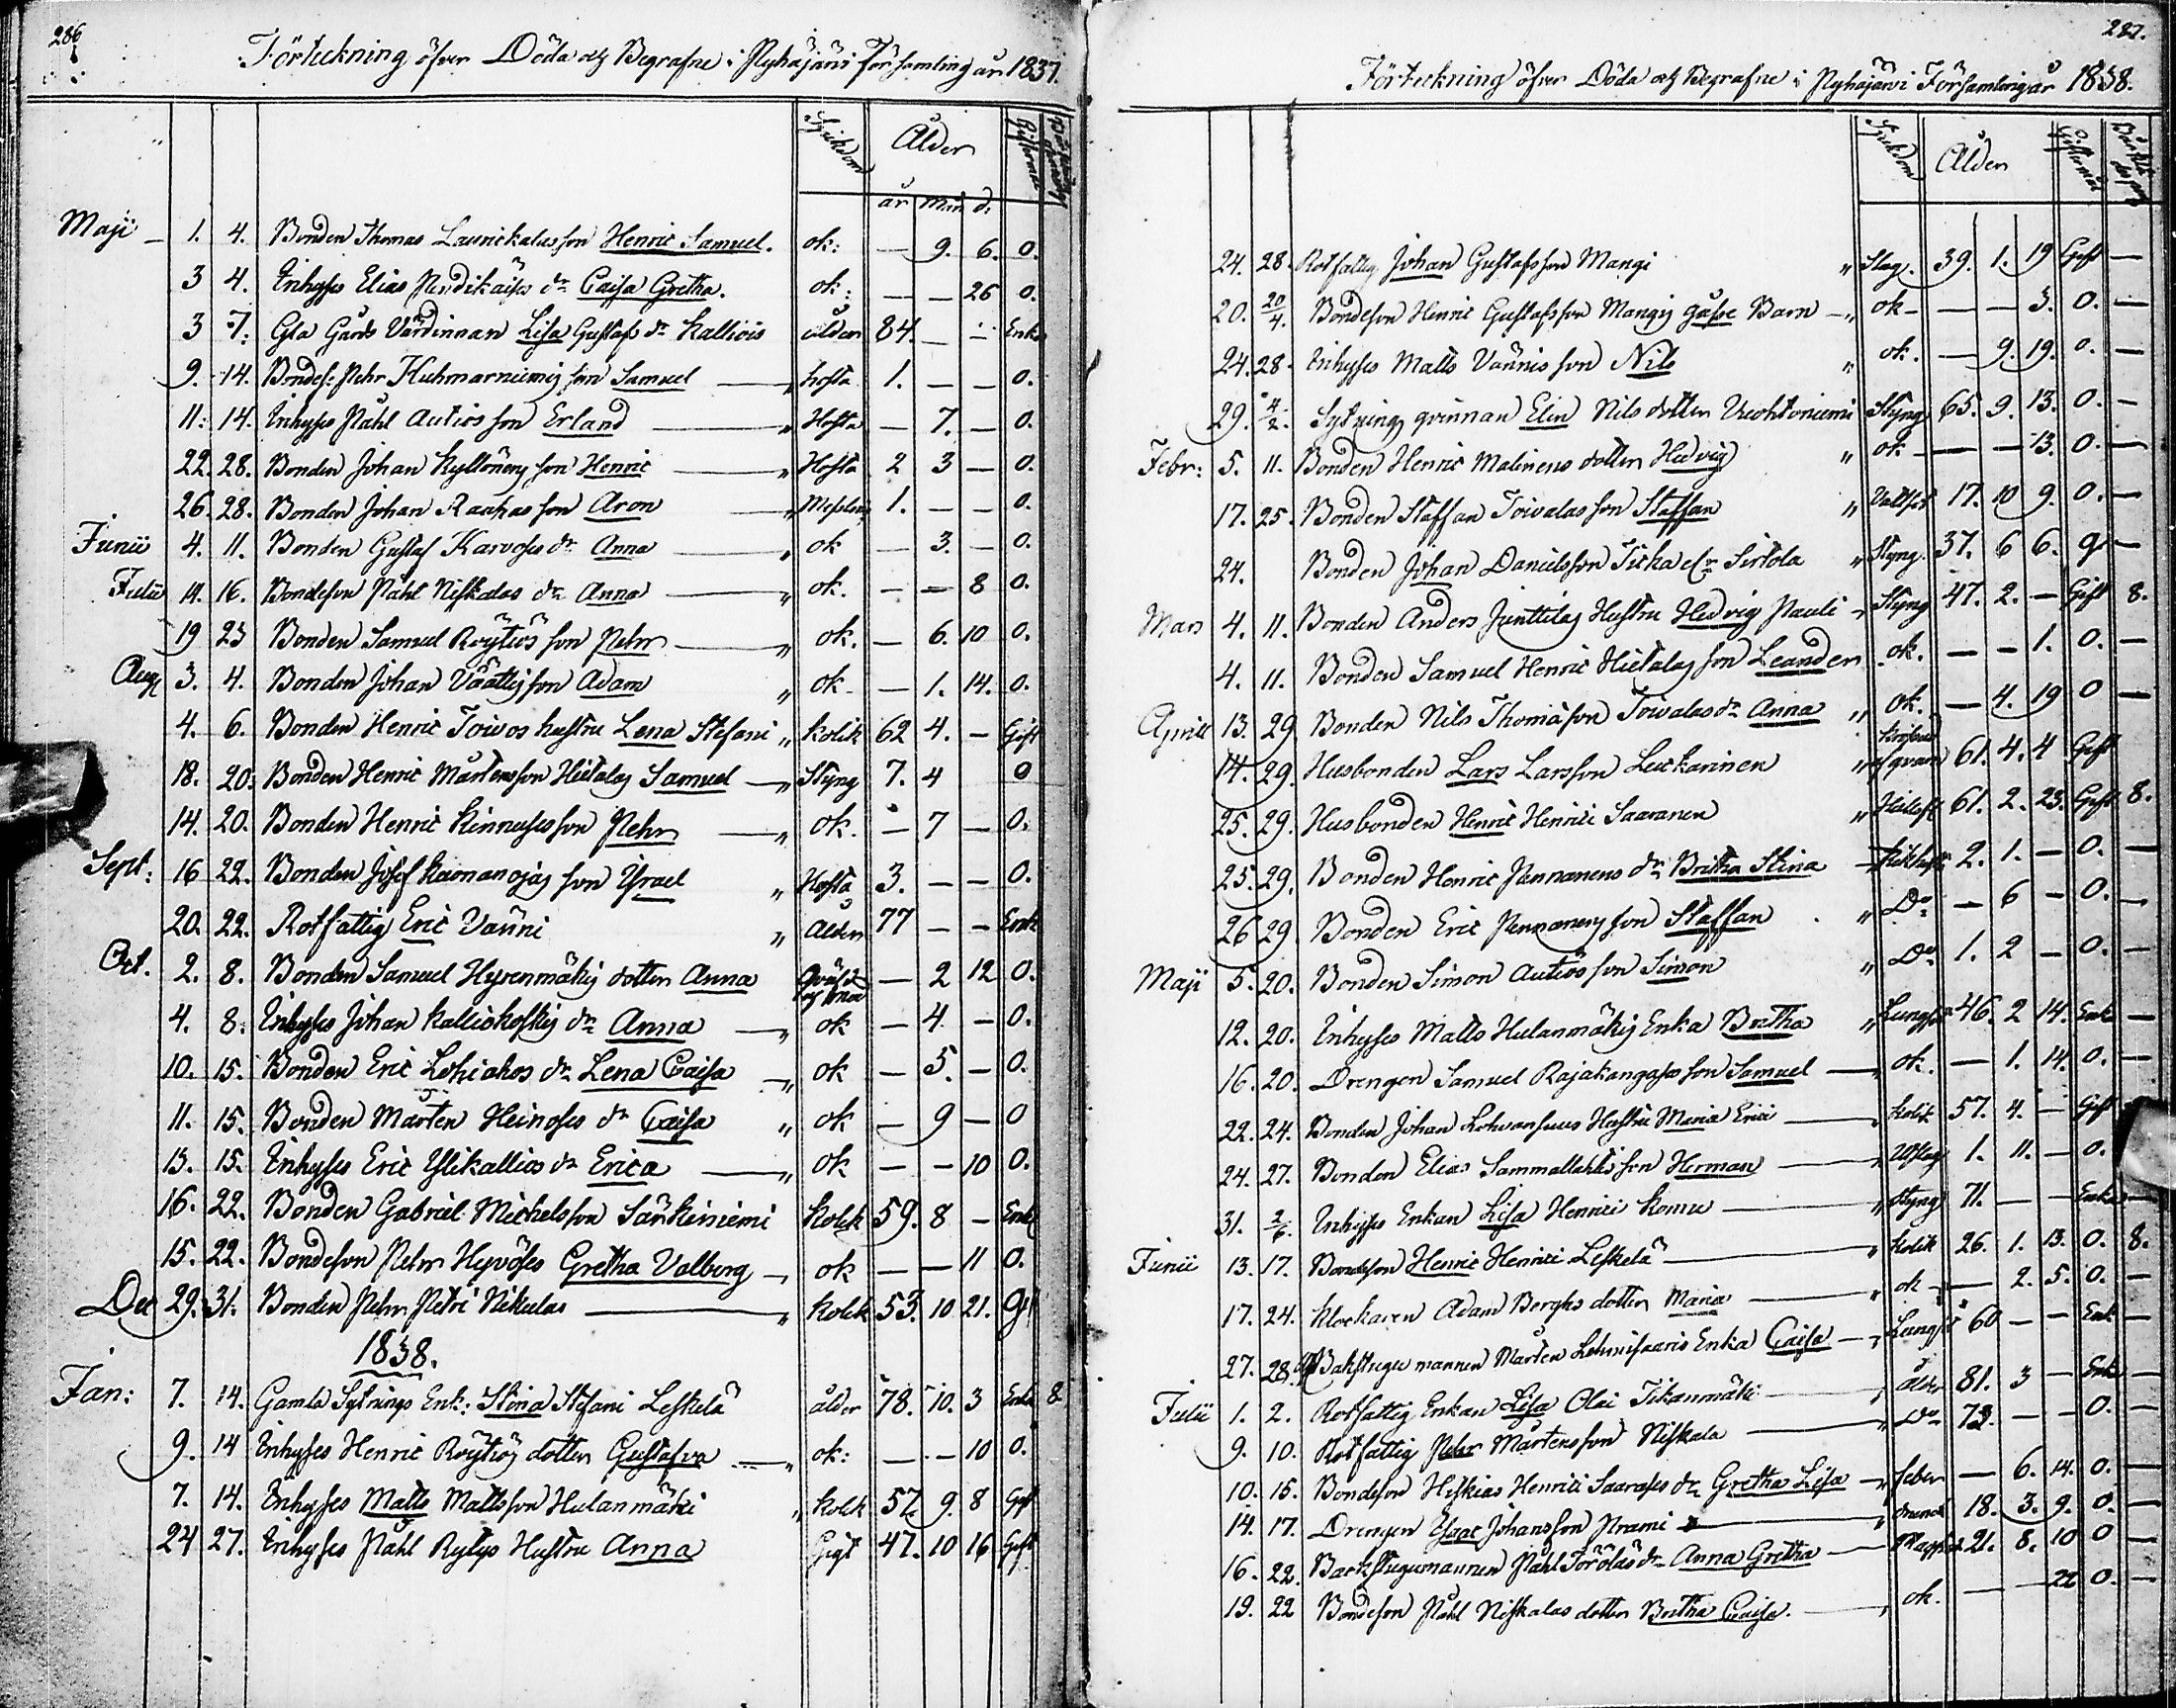 286
Förteckning öfver Döda och Begrafne i Pyhäjärvi Församling år 1837.
Sjukdom Ålder Giftermål
år mån d:
Maji 1. 4. Bonden Thomas Laurikalas son Henric Samuel. ok: — 9. 6. 0.
3 4. Inhyses Elias Pendikäises dr Caisa Gretha. ok: — — 26 0.
3 7. Gla Gårds Värdinnan Lisa Gustafs dr Kalliois ålder 84. — — Enka
9. 14. Bondes: Pehr Kuhmarniemis son Samuel hosta 1. — — 0.
11. 14. Inhyses Påhl Autios son Erland Hosta — 7. — 0.
22. 28. Bonden Johan Kyllönens son Henric Hosta 2 3 — 0.
26. 28. Bonden Johan Raahas son Aron Messling 1. — — 0.
Junii 4. 11. Bonden Gustaf Karvoses dr Anna ok — 3. — 0.
Julii 14. 16. Bondeson Påhl Niskalas dr Anna ok. — — 8 0.
19 23 Bonden Samuel Röytiös son Pehr ok. — 6. 10 0.
Aug 3. 4. Bonden Johan Väättis son Adam ok — 1. 14. 0.
4. 6. Bonden Henric Toivos hustru Lena Stefani kolik 62 4. — Gift
18. 20. Bonden Henric Mårtensson Hietalas Samuel Styng 7. 4 0
14. 20. Bonden Henric Kinnuses son Pehr ok. — 7 — 0.
Sept: 16 22. Bonden Josef Kaonanojas son Israel Hosta 3. — — 0.
20. 22. Rotfattig Eric Vänni Ålder 77 — — Enkl
Oct. 2. 8. Bonden Samuel Hyrenmäkis dotter Anna — 2 12 0.
4. 8. Inhyses Johan Kalliokoskis dr Anna ok — 4 — 0.
10. 15. Bonden Eric Lohiahos dr Lena Caisa ok — 5. — 0.
11. 15. Bonden Mårten Heinoses dr Caisa ok — 9 — 0
13. 15. Inhyses Eric Ylikallios dr Erica ok — — 10 0.
16. 22. Bonden Gabriel Michelsson Särkiniemi Kolik 59. 8 — Enkl
15. 22. Bondeson Pehr Hyvöses Gretha Valborg ok — — 11 0.
Dec 29. 31. Bonden Pehr Petri Nikulas Kolik 53. 10 21. Gift
1838.
Jan: 7. 14. Gamla Sytnings Enk: Stina Stefani Leskelä ålder 78. 10. 3 Enka 8
9. 14 Inhyses Henric Röytiös dotter Gustafva ok: — — 10 0.
7. 14. Inhyses Matts Mattsson Hulanmäki kolik 57. 9. 8 Gift
24 27. Inhyses Påhl Rytys Hustru Anna Gigt 47. 10 16 Gift
287.
Förteckning öfver Döda och Begrafne i Pyhäjärvi Församling år 1838.
Sjukdom Ålder Giftermål
24. 28. Rotfattig Johan Gustafsson Mangi Slag. 39. 1. 19 Gift —
20. 20/4. Bondeson Henric Gustafsson Mangis gåsse Barn ok — — 3. 0. —
24. 28. Inhyses Matts Vännis son Nils ok. — 9. 19. 0. —
29. 4/2. Sytnings qvinnan Elin Nils dotter Vuohtoniemi Styng 65. 9. 13. 0. —
Febr: 5. 11. Bonden Henric Malinens dotter Hedvig ok — — 13. 0. —
17. 25. Bonden Staffan Toivalas son Staffan Vattsot 17. 10 9. 0. —
24. Bonden Johan Danielsson Ticka el:r Sirtola Styng. 37. 6 6. g. —
Mars 4. 11. Bonden Anders Junttilas Hustru Hedvig Pauli Styng 47. 2. — Gift 8.
4. 11. Bonden Samuel Henric Hietalas son Leander ok. — — 1. 0. —
April 13. 29. Bonden Nils Thomasson Toivalas dr Anna ok. — 4. 19 0 —
14. 29. Husbonden Lars Larsson Leskarinen 61. 4. 4 Gift
25. 29. Husbonden Henric Henrici Saaranen 61. 2. 23. Gift 8.
25. 29. Bonden Henric Pennanens dr Britha Stina Kikhosta 2. 1. — 0. —
26 29. Bonden Eric Pennanens son Staffan Do — 6 — 0. —
Maji 5. 20. Bonden Simon Autiös son Simon Do 1. 2 — 0. —
12. 20. Inhyses Matts Hulanmäkis Enka Britha Lungsot 46. 2 14. Enk —
16. 20. Drengen Samuel Rajakangases son Samuel ok. — 1. 14. 0. —
22. 24. Bonden Johan Lohvansuus Hustru Maria Erici kolik 57. 4. — Gift
24. 27. Bonden Elias Sammallahtis son Herman Utslag 1. 11. — 0.
31. 2/6. Inhyses Enkan Lisa Henrici Komu styng 71. — — Enka —
Junii 13. 17. Bondeson Henric Henrici Leskelä kolik 26. 1. 13. 0. 8.
17. 24. Klockaren Adam Berghs dotter Maria ok — 2. 5. 0. —
27. 28. Bakstugu mannen Mårten Lehmisaaris Enka Caisa Lungsot 60 — — Enk —
Julii 1. 2. Rotfattig Enkan Lisa Olai Tikanmäki ålder 81. 3 — Enk —
9. 10. Rotfattig Pehr Mårtensson Niskala Do 73. — — 0. —
10. 15. Bondeson Hiskias Henrici Saarases dr Gretha Lisa feber — 6. 14. 0. —
14. 17. Drengen Isaac Johansson Prami drunck 18. 3. 9. 0. —
16. 22. Backstugumannen Påhl Törölas dr Anna Gretha 21. 8. 10 0 —
19. 22 Bondeson Påhl Niskalas dotter Britha Caisa. ok. — — 22 0. —